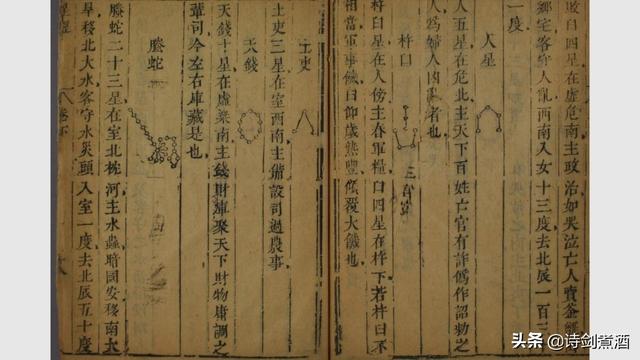 敗臼四星在虛危南主政治如哭泣亡人賣釜
鄉宅客守人亂西南入女十三度去北辰一百三
一度
人星
人五星在危北主天下百姓亡官有詐偽作詔勑之
人為婦人凶亂者也
杵臼
杵臼星在人傍主舂軍糧臼四星在杵下若杵臼不
相當軍事候臼仰歲熟豐傾覆大饑也
土吏
土吏三星在室西南主備設司過農事
天錢
天錢十星在虛梁南主錢財庫聚天下財物庸調之
輩司今左右庫藏是也
螣蛇
螣蛇二十三星在室北枕河主水蟲暗國安移南大
旱移北大水客守水災頭入室一度去北辰五十度
頭条 @诗剑煮酒